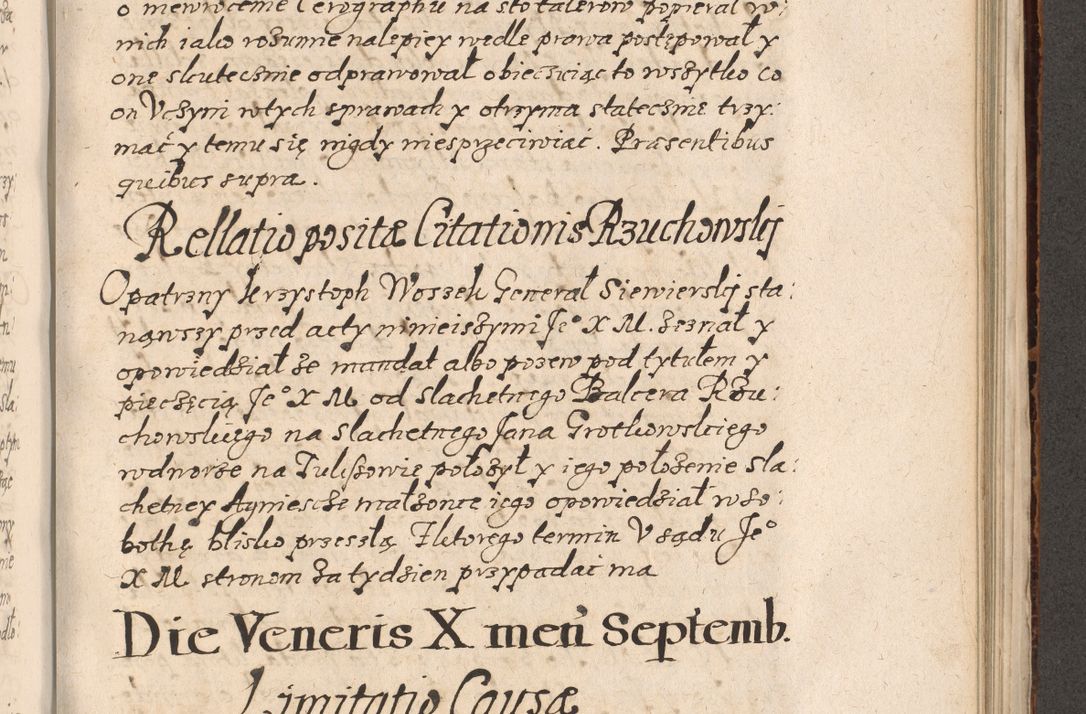 o niewrocenie Cerographu na sto talerow popieral w:
nich iako rozumie nalepiey wedle prawa postępował y
one skutecznie odprawował obiecuiąc to wszytko co
on Vczyni wtych sprawach y otrzyma statecznie trzy:
mać y temu się nigdy niesprzeciwiać. Præsentibus
quibus supra.
Rellatio positæ Citationis Rzuchowskÿ
Opatrzny Krzystoph Woszek General Siewierskÿ sta:
nąwszy przed acty ninieiszymi Jeº X M. zeznał y
opowiedział że mandat albo pozew pod tytułem y
pieczęcią Jeº X M od slachetnego Balcera Rzu:
chowskiego na slachetnego Jana Grotkowskiego
wdworze na Tulissowie położył y iego położenie sla:
chetney Agniescze małżonce iego opowiedział wso:
bothę blisko przeszlą Zktorego termin V sądu Jeº
X M stronom za tydzien przypadać ma
Die Veneris X men Septemb.
Limitatio Causæ